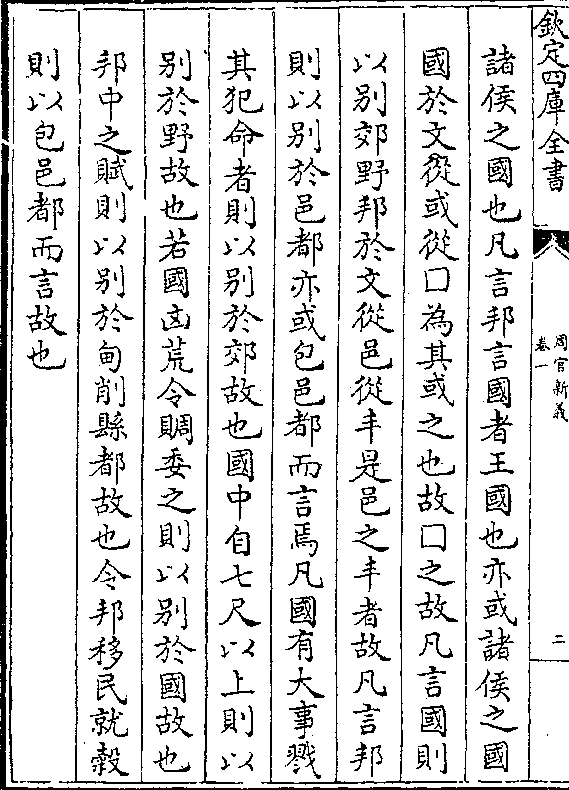 欽定四庫全書
周官新義
卷一
二
諸侯之國也凡言邦言國者王國也亦或諸侯之國
國於文從或從囗為其或之也故囗之故凡言國則
以別郊野邦於文從邑從丰是邑之丰者故凡言邦
則以別於邑都亦或包邑都而言焉凡國有大事戮
其犯命者則以別於郊故也國中自七尺以上則以
別於野故也若國凶荒令賙委之則以別於國故也
邦中之賦則以別於甸削縣都故也令邦移民就穀
則以包邑都而言故也